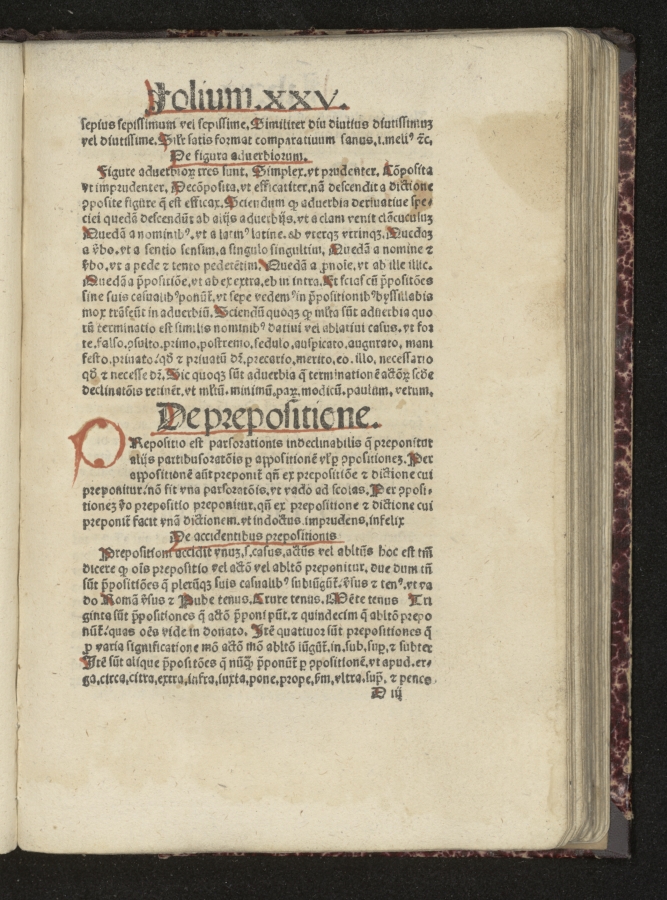 Folium.xxv.
sepius sepissimum vel sepissime. Similiter diu diutius diutissimuʒ
vel diutissime. Silr̄ satis format comparatiuum sanus.i.meliꝰ ⁊c̄.
De figura aduerbiorum.
Figure aduerbioꝝ tres sunt. Simplex.vt prudenter. Cōposita
vt imprudenter. Decōposita.vt efficatiter.nā descendit a dictione
ꝯposite figure q̄ est efficax. Sciendum ꝙ aduerbia deriuatiue spe⸗
ciei quedā descendūt ab alijs aduerbijs.vt a clam venit clāculuʒ
Quedā a nominibꝰ.vt a latinꝰ latine.ab vterqʒ vtrinqʒ. Quedaʒ
a v̄bo.vt a sentio sensim.a singulo singultim. Quedā a nomine ⁊
v̄bo.vt a pede ⁊ tento pedetētim. Quedā a ꝓnoīe.vt ab ille illic.
Quedā a p̄positiōe.vt ab ex extra.ab in intra. Et scias cū p̄positōes
sine suis casualibꝰ ponūt̄.vt sepe vedemꝰ in p̄positionibꝰ dyssillabis
mox trāseūt in aduerbiū. Sciendū quoqʒ ꝙ ml̄ta sūt aduerbia quo
rū terminatio est similis nominibꝰ datiui vel ablatiui casus.vt for
te.falso.ꝯsulto.primo.postremo.sedulo.auspicato.augurato.mani
festo.priuato.qd̄ ⁊ priuatū dr̄.precario.merito.eo.illo.necessario
qd̄ ⁊ necesse dr̄. Sic quoqʒ sūt aduerbia q̄ terminationē actōꝝ scd̄e
declinatōis retinēt.vt ml̄tū.minimū.paꝝ.modicū.paulum.verum.
De prepositione.
PRepositio est pars orationis indeclinabilis q̄ preponitur
alijs partibus oratōis ꝑ appositionē vl̄ ꝑ ꝯpositioneʒ. Per
appositionē aūt preponit̄ qn̄ ex prepositiōe ⁊ dictione cui
preponitur.nō fit vna pars oratōis.vt vado ad scolas. Per ꝯposi⸗
tioneʒ v̄o prepositio preponitur.qn̄ ex prepositione ⁊ dictione cui
preponit̄ facit vnā dictionem.vt indoctus.imprudens.infelix
De accidentibus prepositionis
Prepositioni accidit vnuʒ.s.casus.actūs vel abltūs hoc est tm̄
dicere ꝙ oīs prepositio vel actō vel abltō preponitur.due dum tn̄
sūt p̄positiōes q̄ plerūqʒ suis casualibꝰ subiūgūt̄.v̄sus ⁊ tenꝰ.vt va
do Romā v̄sus ⁊ Pube tenus. Crure tenus. Mēte tenus Tri
ginta sūt p̄positiones q̄ actō p̄poni pn̄t.⁊ quindecim q̄ abltō prepo
nūt̄.quas oēs vide in donato. Itē quattuor sūt prepositiones q̄
ꝓ varia significatione mō actō mō abltō iūgūt̄.in.sub.sup̄.⁊ subter
Itē sūt alique p̄positōes q̄ nūqʒ p̄ponūt̄ ꝑ ꝯpositionē.vt apud.er⸗
ga.circa.citra.extra.infra.iuxta.pone.prope.sm̄.vltra.sup̄.⁊ penes.
D iij